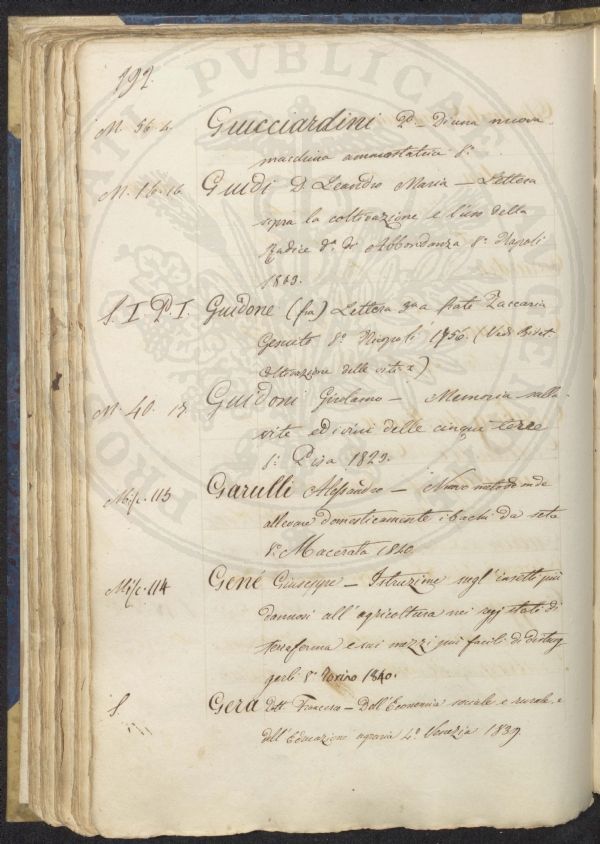 192.
M. 56. 4. Guicciardini Di una nuova
macchina ammostatura 8.°
M. 16. 16 Guidi D. Leandro Maria – Lettera
sopra la coltivazione e l'uso della
Radice d.a di Abbondanza 8.° Napoli
S. I. P. I. Guidone (fra) Lettera a frate Zaccaria
8.° 1756. (Vedi
Coltivazione delle viti
M. 40. 13 Guidoni Girolamo – Memoria sulla
vite ed i vini delle cinque terre
8.° Pisa 1823.
Misc. 115 Garulli Alessandro – Nuovo metodo onde
allevare domesticamente i bachi da seta
8.° Macerata 1840
Misc. 114 Gené Giuseppe – Istruzione sugl' insetti più
dannosi all' agricoltura nei regj stati di
terraferma e sui mezzi più facili di distrug
gerli 8.° Torino 1840.
S. Gera Dott. Francesco – Dell'Economia sociale e rurale, e
dell'Educazione agraria 4.° Venezia 1839
PROSPERITATI PVBLICAE